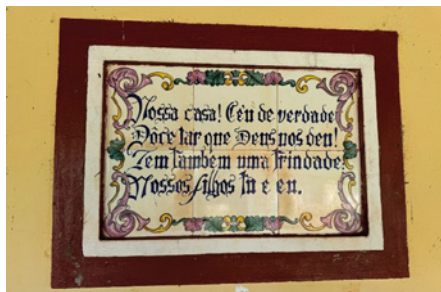 Nossa casa! Céu de verdade
Dôce lar que Deus nos deu!
Tem também uma trindade
Nossos filhos tu e eu.